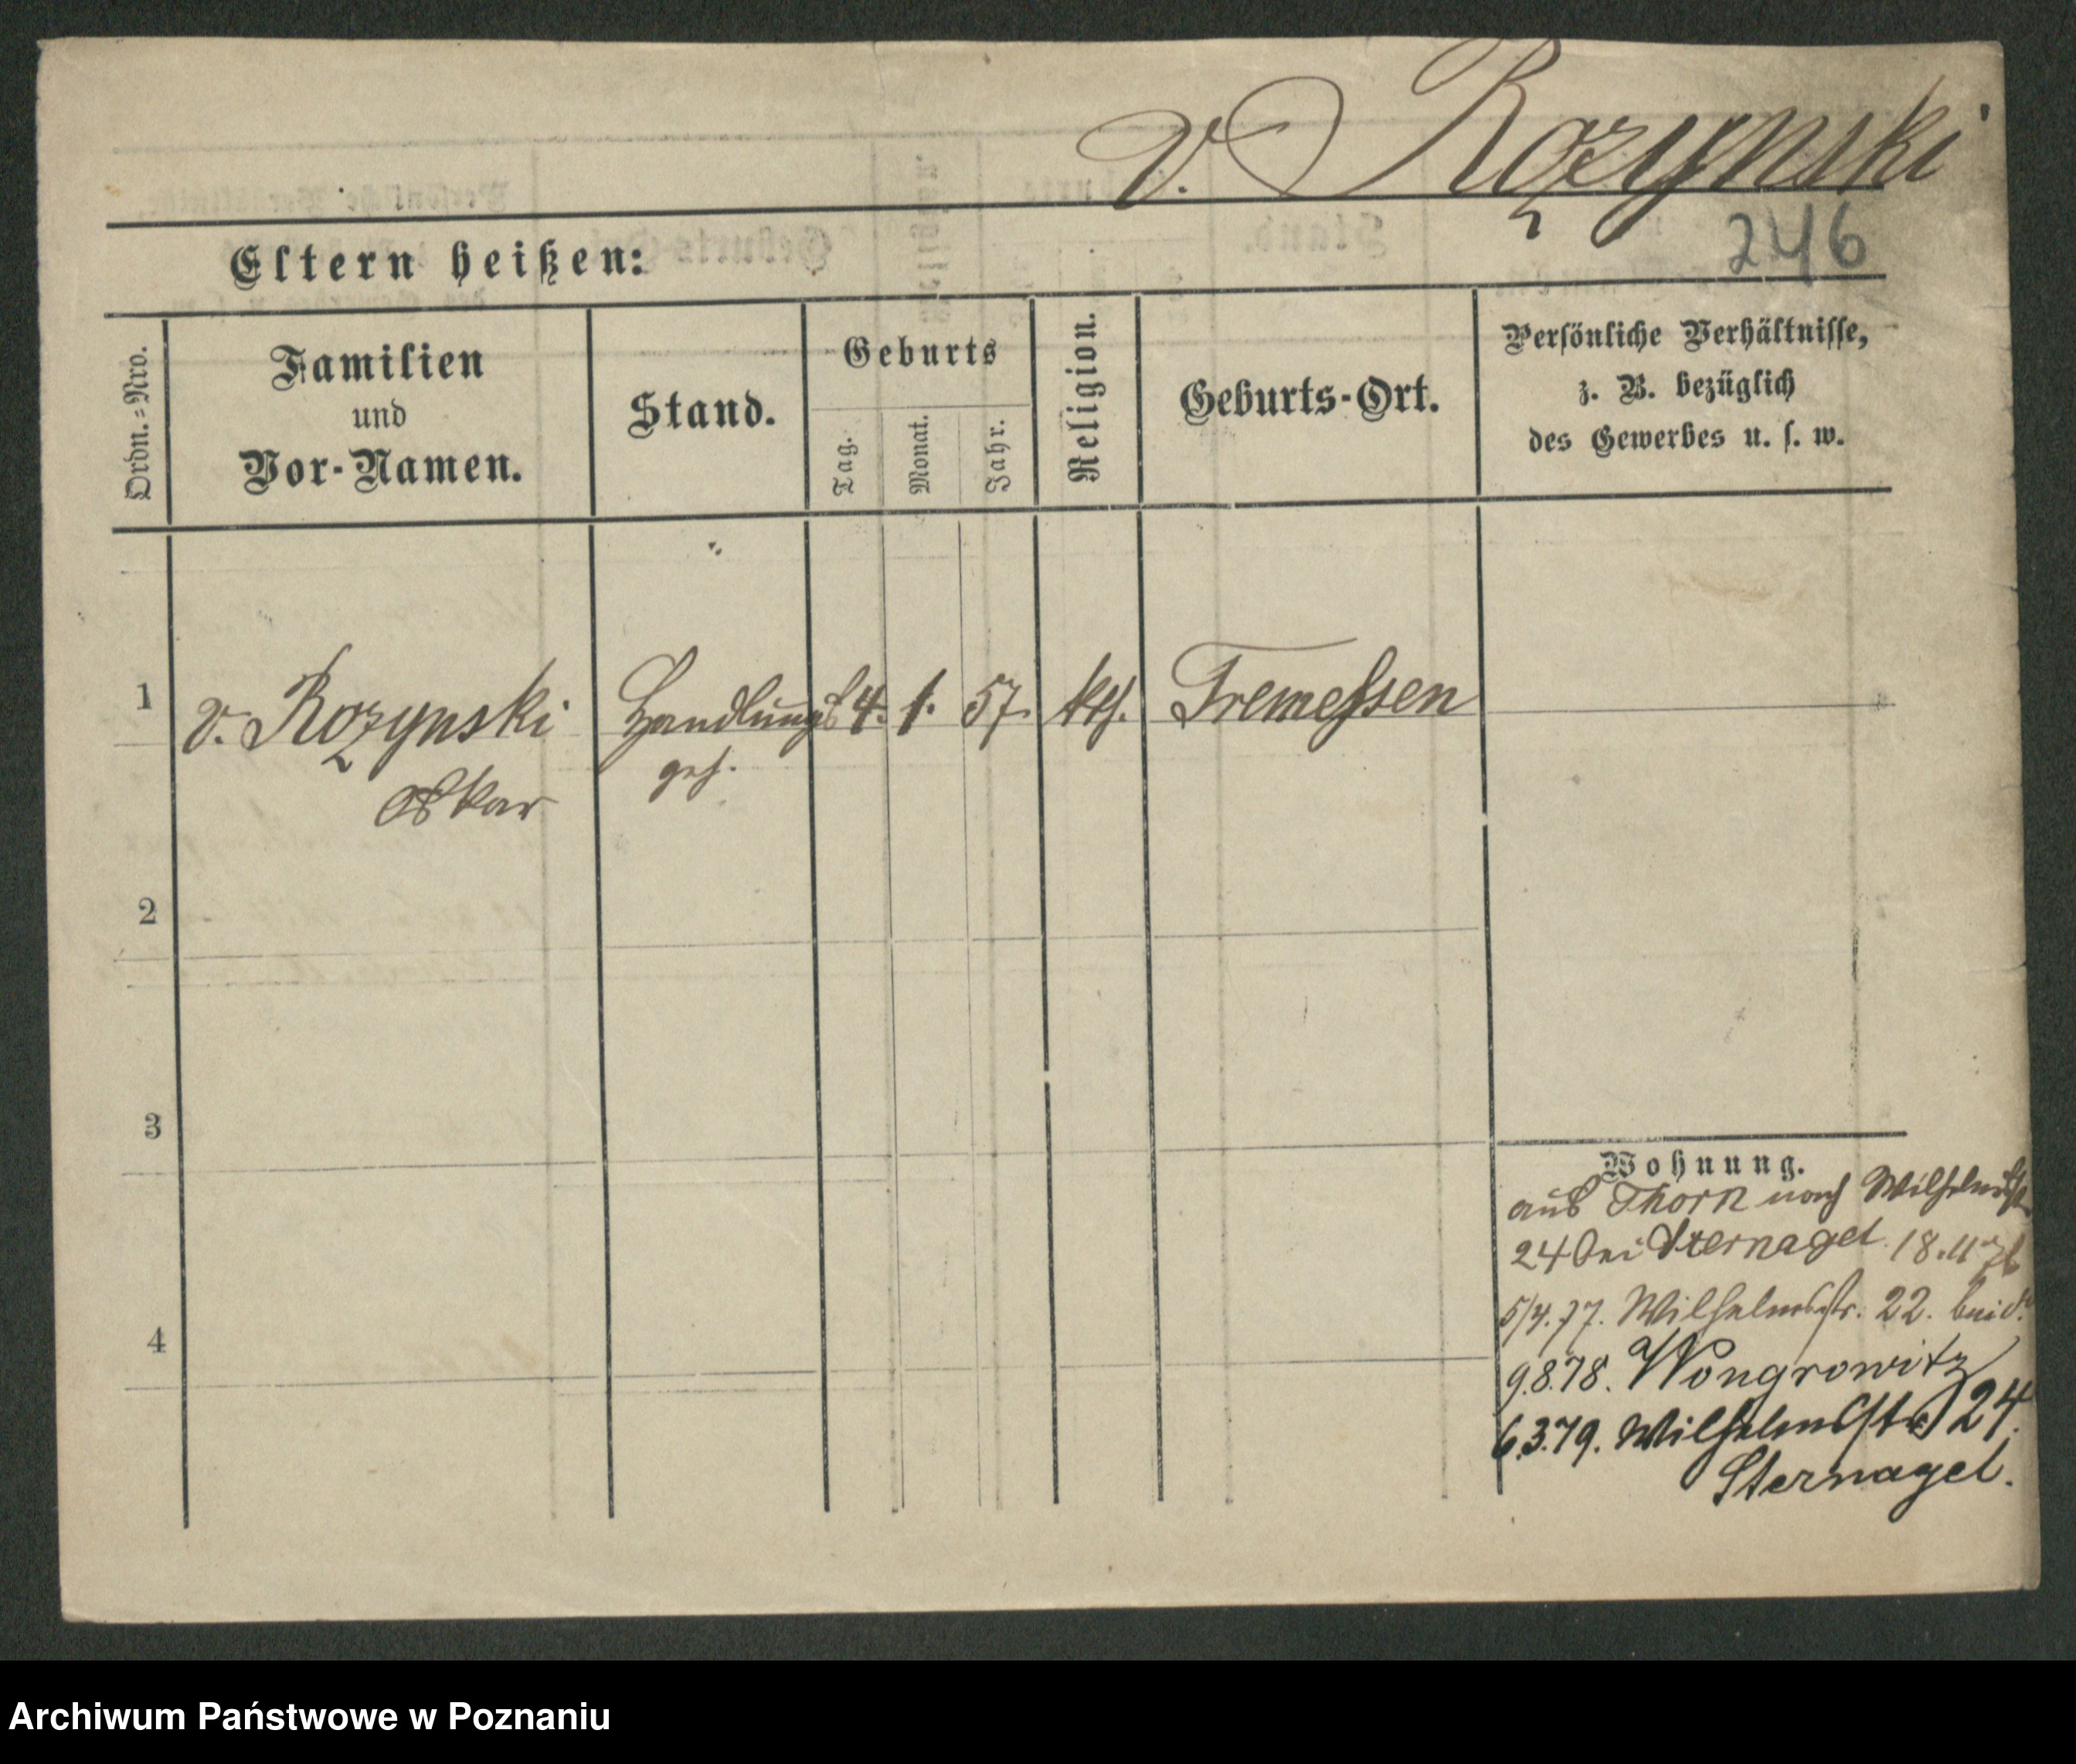 v. Rozynski
246
Eltern heißen:
Ordn.-Nro.
Familien
und
Vor-Namen.
Stand.
Geburts
Tag.
Monat.
Jahr.
Religion.
Geburts-Ort.
Persönliche Verhältnisse,
z. B. bezüglich
des Gewerbes u. s. w.
1
v. Rozynski
Oskar
Handlungs
geh.
4. 1. 57.
kth.
Tremessen
2
3
4
Wohnung.
aus Thorn nach Wilhelmstr
24 bei Sternagel 18.11 76
5/4. 77. Wilhelmstr. 22. bei d.
9.8.78. Wongrowitz
6.3.79. Wilhelmstr 24.
Sternagel.
Archiwum Państwowe w Poznaniu